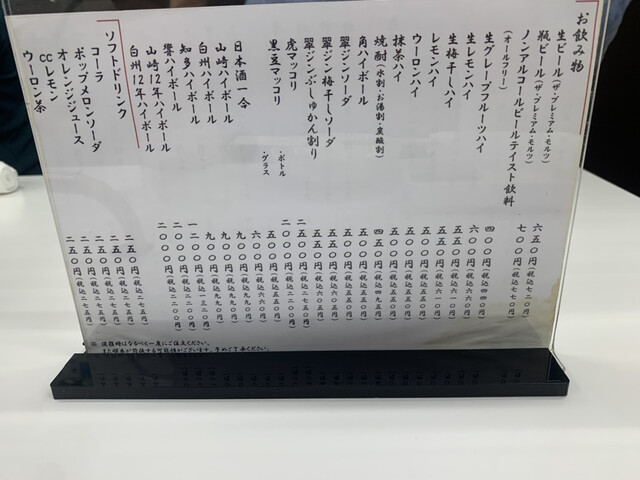 お飲み物
生ビール(ザ・プレミアム・モルツ) 六五〇円(税込七二〇円)
瓶ビール(ザ・プレミアム・モルツ) 七〇〇円(税込七七〇円)
ノンアルコールビールテイスト飲料
(オールフリー) 四〇〇円(税込四四〇円)
生グレープフルーツハイ 六〇〇円(税込六六〇円)
生レモンハイ 五五〇円(税込六一〇円)
生梅干しハイ 五五〇円(税込六一〇円)
レモンハイ 五〇〇円(税込五五〇円)
ウーロンハイ 五〇〇円(税込五五〇円)
抹茶ハイ 五〇〇円(税込五五〇円)
焼酎(水割・お湯割・炭酸割) 四五〇円(税込四九五円)
角ハイボール 五〇〇円(税込五五〇円)
翠ジンソーダ 五〇〇円(税込五五〇円)
翠ジン梅干しソーダ 五五〇円(税込六〇五円)
翠ジンぶしゅかん割り 五五〇円(税込六〇五円)
虎マッコリ 二五〇〇円(税込二七五〇円)
黒豆マッコリ ・ボトル 二〇〇〇円(税込二二〇〇円)
・グラス 五〇〇円(税込五五〇円)
日本酒一合 六〇〇円(税込六六〇円)
山崎ハイボール 九〇〇円(税込九九〇円)
白州ハイボール 九〇〇円(税込九九〇円)
知多ハイボール 九〇〇円(税込九九〇円)
響ハイボール 一二〇〇円(税込一三二〇円)
山崎12年ハイボール 二〇〇〇円(税込二二〇〇円)
白州12年ハイボール 二〇〇〇円(税込二二〇〇円)
ソフトドリンク
コーラ 二五〇円(税込二七五円)
ポップメロンソーダ 二五〇円(税込二七五円)
オレンジジュース 二五〇円(税込二七五円)
CCレモン 二五〇円(税込二七五円)
ウーロン茶 二五〇円(税込二七五円)
※ 混雑時はなるべく一度にご注文ください。
また順番が前後する可能性がございます。予めご了承ください。